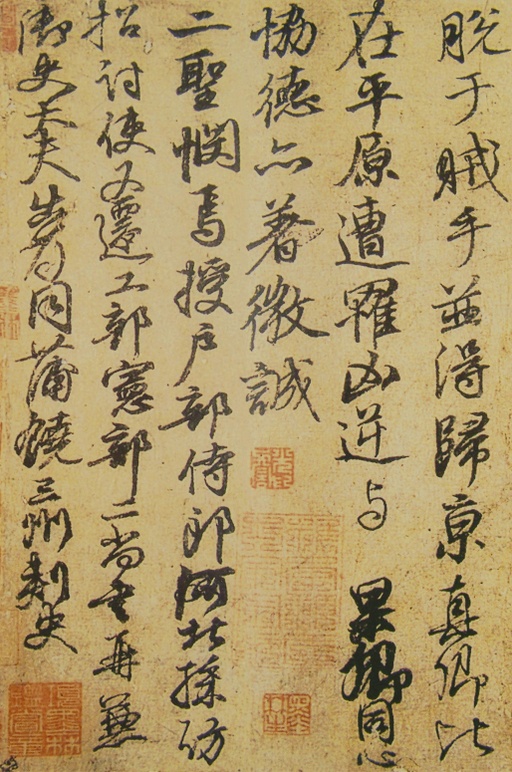 脫于賊手並得歸京真卿比
在平原遭罹凶逆与杲卿同心
恊德亦著微誠
二聖憫焉授戶部侍郎河北採訪
招討使又遷工部憲部二尚書再兼
御史大夫出為同蒲饒三州刺史